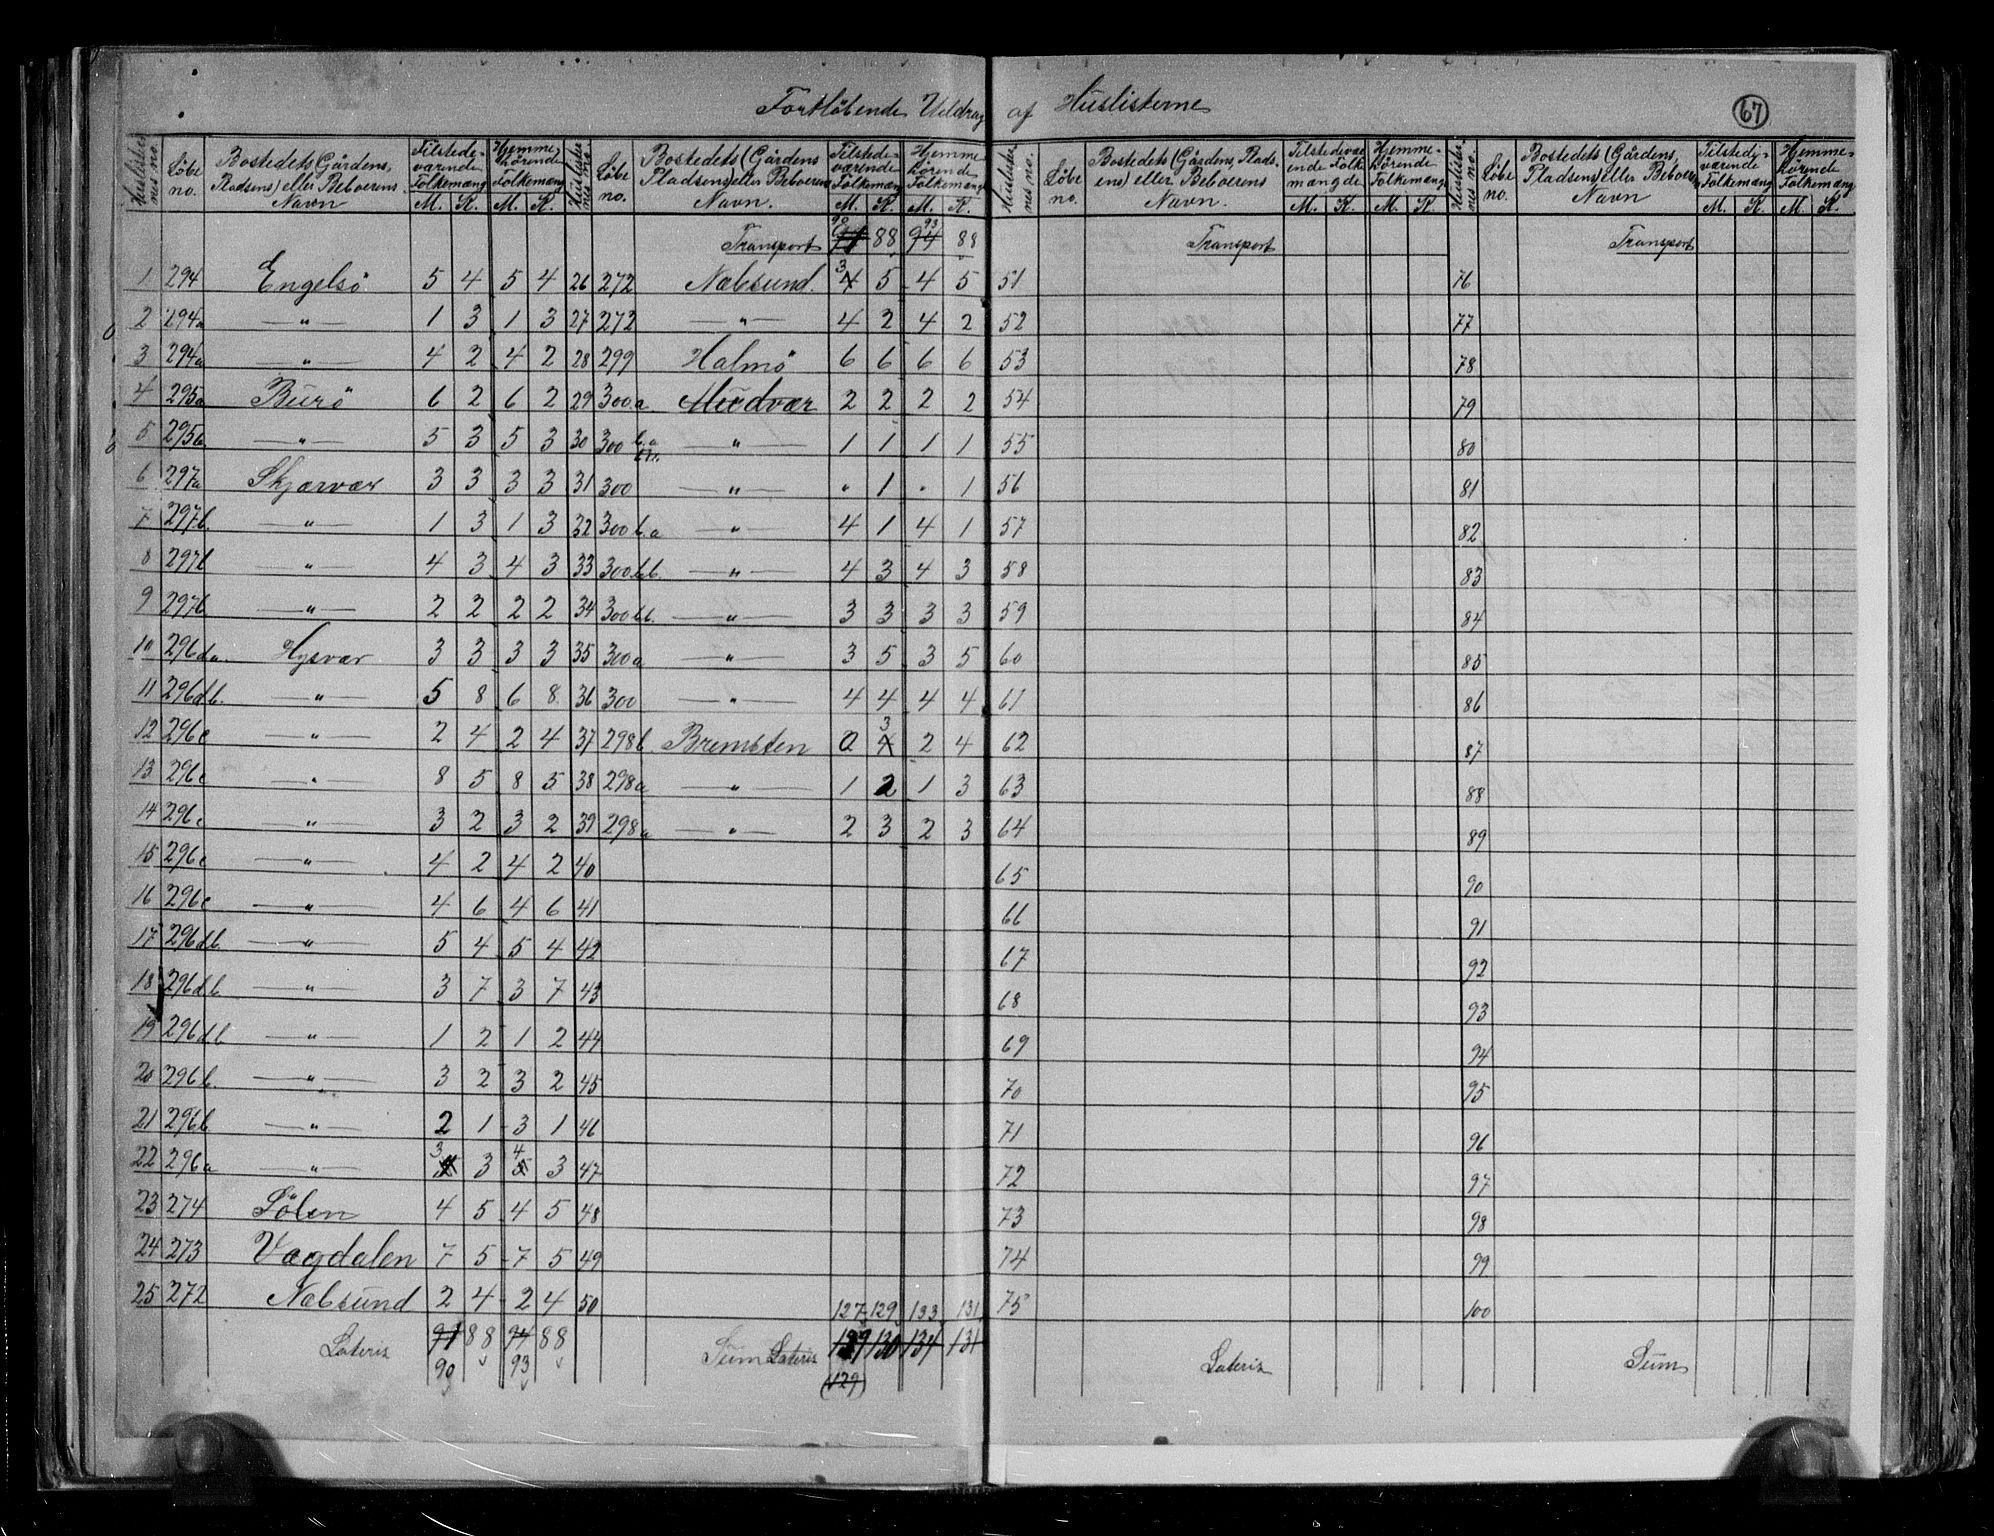 Fortløbende Uddrag af Huslisterne
67
Huslisternes no. Løbe no. Bostedets (Gårdens, Pladsens) eller Beboerens Navn Tilstedeværende Folkemæng. M. K. Hjemmehørende Folkemæng M. K. Huslisternes no. Løbe no. Bostedets (Gårdens Pladsens) eller Beboerens Navn. Tilstedeværende Folkemæng M. K. Hjemmehørende Folkemæng M. K.
Huslisternes no. Løbe no. Bostedets (Gårdens, Pladsens) eller Beboerens Navn. Tilstedeværende Folkemængde M. K. Hjemmehørende Folkemæng M. K. Huslisternes no. Løbe no. Bostedets (Gårdens, Pladsens) eller Beboerens Navn Tilstedeværende Folkemæng M. K. Hjemmehørende Folkemæng M. K.
Transport 90 91 88 93 94 88 Transport Transport
1 294 Engelsö 5 4 5 4 26 272 Næbsund. 3 4 5 4 5 51 76
2 294a —"— 1 3 1 3 27 272 —"— 4 2 4 2 52 77
3 294a —"— 4 2 4 2 28 299 Halmö 6 6 6 6 53 78
4 295a Burö 6 2 6 2 29 300a Mudvær 2 2 2 2 54 79
5 295a —"— 5 3 5 3 30 300 b.a —"— 1 1 1 1 55 80
6 297a Skjærvær 3 3 3 3 31 300 —"— " 1 " 1 56 81
7 297b. —"— 1 3 1 3 32 300 b.a —"— 4 1 4 1 57 82
8 297b —"— 4 3 4 3 33 300bb. —"— 4 3 4 3 58 83
9 297b —"— 2 2 2 2 34 300bb. —"— 3 3 3 3 59 84
10 296da. Hysvær 3 3 3 3 35 300a —"— 3 5 3 5 60 85
11 296db. —"— 5 8 6 8 36 300 —"— 4 4 4 4 61 86
12 296c —"— 2 4 2 4 37 298b Bremsten 0 3 4 2 4 62 87
13 296c —"— 8 5 8 5 38 298a —"— 1 2 1 3 63 88
14 296c —"— 3 2 3 2 39 298a —"— 2 3 2 3 64 89
15 296c —"— 4 2 4 2 40 65 90
16 296c —"— 4 6 4 6 41 66 91
17 296db —"— 5 4 5 4 42 67 92
18 296db —"— 3 7 3 7 43 68 93
19 296db —"— 1 2 1 2 44 69 94
20 296b. —"— 3 2 3 2 45 70 95
21 296b —"— 2 1 3 1 46 71 96
22 296a —"— 3 4 3 4 5 3 47 72 97
23 274 Sølen 4 5 4 5 48 73 98
24 273 Vægdalen 7 5 7 5 49 74 99
25 272 Næbsund 2 4 2 4 50 127 129 133 131 75 100
Lateris 91 88 94 88 Sum Lateris 129 130 134 131 Lateris Sum
90 93 (129)